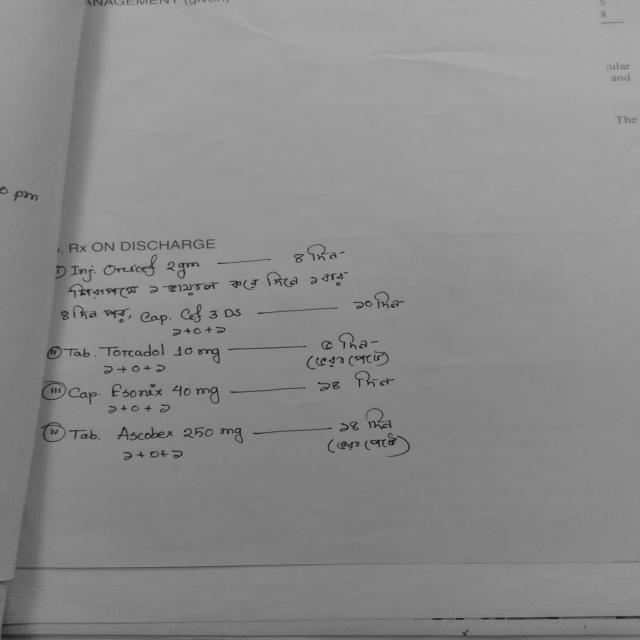 ANAGEMENT (given)
5
8
gular
and
The
0 pm
. Rx ON DISCHARGE
i) Inj. Oricef 2gm ——— ৪ দিন
শিরাপথে ১ ভায়াল করে দিনে ১ বার
৪ দিন পর, Cap. Cef 3 DS ——— ১০ দিন
১+০+১
ii Tab. Torcadol 10 mg ——— ৫ দিন
১+০+১ (ভরা পেটে)
iii Cap. Esonix 40 mg ——— ১৪ দিন
১+০+১
iv Tab. Ascobex 250 mg ——— ১৪ দিন
১+০+১ (ভরা পেটে)